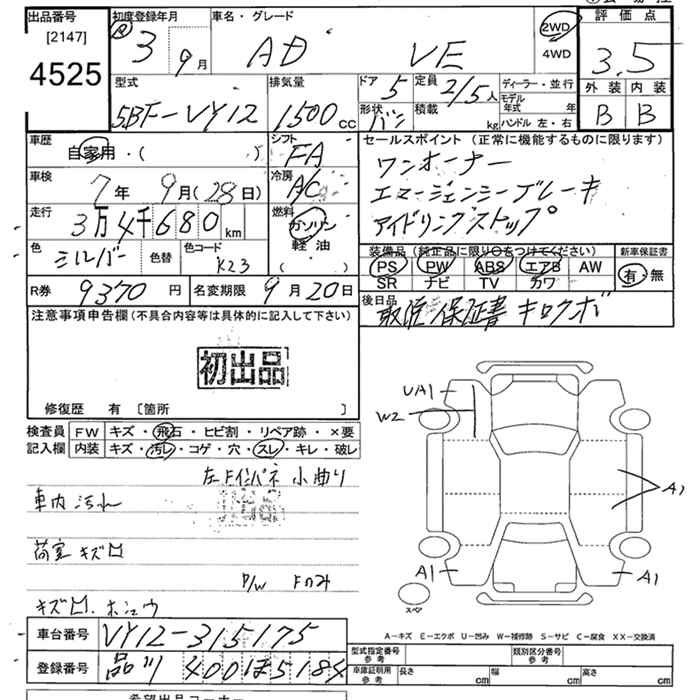 出品番号 初度登録年月 車名・グレード 2WD 評価点
[2147] 3 9月 AD VE 4WD 3.5
4525
型式 排気量 ドア 5 定員 2/5人 ディーラー・並行 外装 内装
5BF-VY12 1500cc 形状 バン 積載 kg モデル年式 年 B B
ハンドル 左・右
車歴 自家用・( ) シフト FA セールスポイント (正常に機能するものに限ります)
車検 7年 9月(28日) 冷房 A/C ワンオーナー
エマージェンシーブレーキ
走行 3万4千680km 燃料 ガソリン アイドリングストップ
軽油
( )
色 シルバー 色替 色コード K23 装備品 (純正品に限り○をつけてください) 新車保証書
PS PW ABS エアB AW 有・無
SR ナビ TV カワ
R券 9370円 名変期限 9月20日 後日品 取説 保証書 キロクボ
注意事項申告欄 (不具合内容等は具体的に記入して下さい)
初出品
修復歴 有 [箇所 ]
検査員 FW キズ・飛石・ヒビ割・リペア跡・×要
記入欄 内装 キズ・汚レ・コゲ・穴・スレ・キレ・破レ
左Fインパネ 小曲り
車内 汚れ
荷室 キズ凹
P/W Fのみ
キズ凹. ホシュウ
UA1
W2
A1
A1
A1
スペア
A-キズ E-エクボ U-凹み W-補修跡 S-サビ C-腐食 XX-交換済
車台番号 VY12-315175
型式指定番号 参考 類別区分番号 参考
登録番号 品川 400ほ5184
車庫証明用 参考 長さ 幅 高さ
cm cm cm
希望出品コーナー